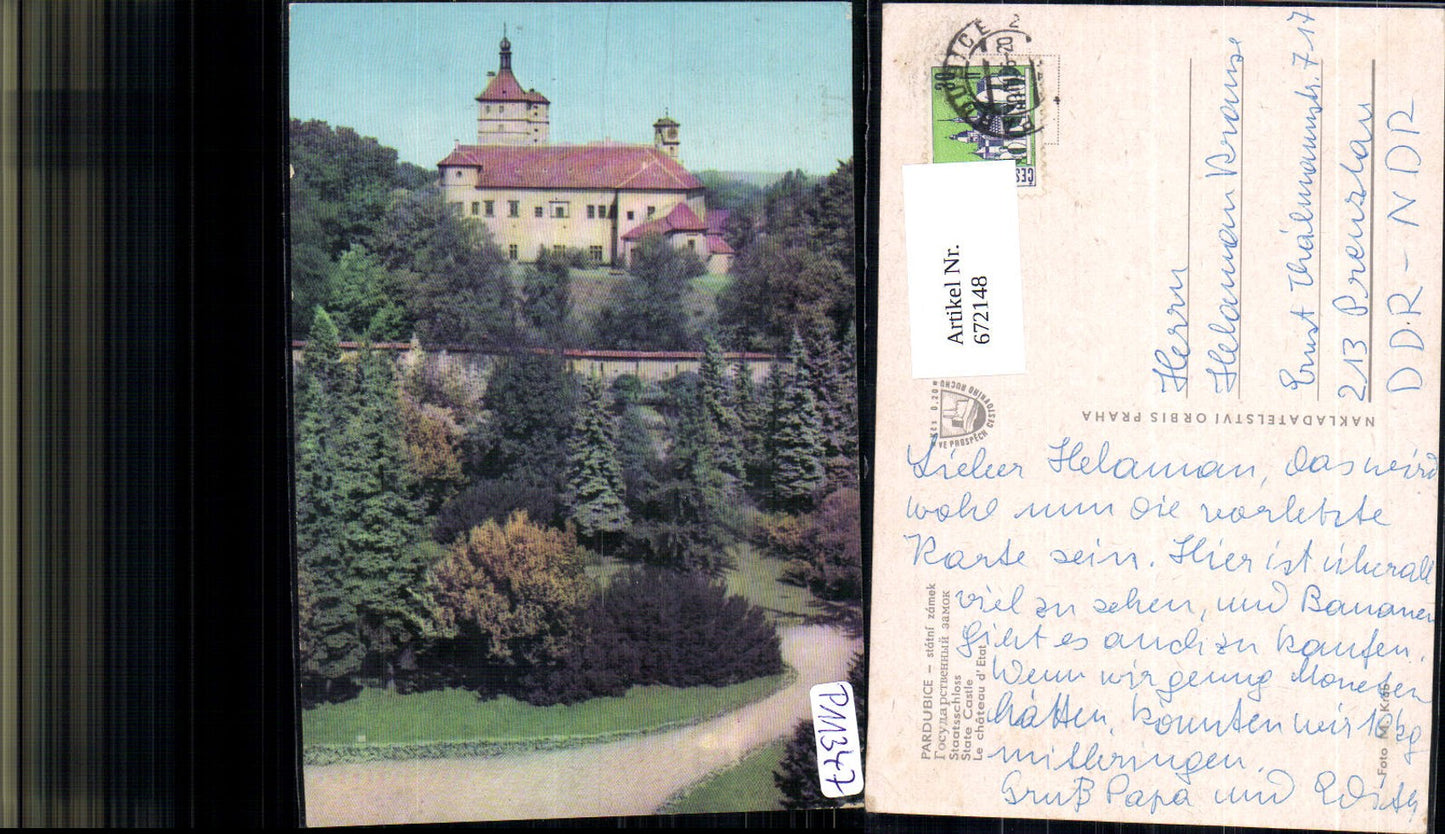 Artikel Nr.
672148
Kčs 0,20
VE PROSPĚCH CESTOVNÍHO RUCHU
PARDUBICE – státní zámek
Государственный замок
Staatsschloss
State Castle
Le château d'Etat
NAKLADATELSTVÍ ORBIS PRAHA
Foto M. Kas
Herrn
Helaman Krause
Ernst Thälmannstr. 717
213 Prenzlau
DDR – NDR
Lieber Helaman, das wird
wohl nun die vorletzte
Karte sein. Hier ist überall
viel zu sehen, und Bananen
giebt es auch zu kaufen.
Wenn wir genug Moneten
hätten, könnten wir 10 kg
mitbringen.
Gruß Papa und Edith